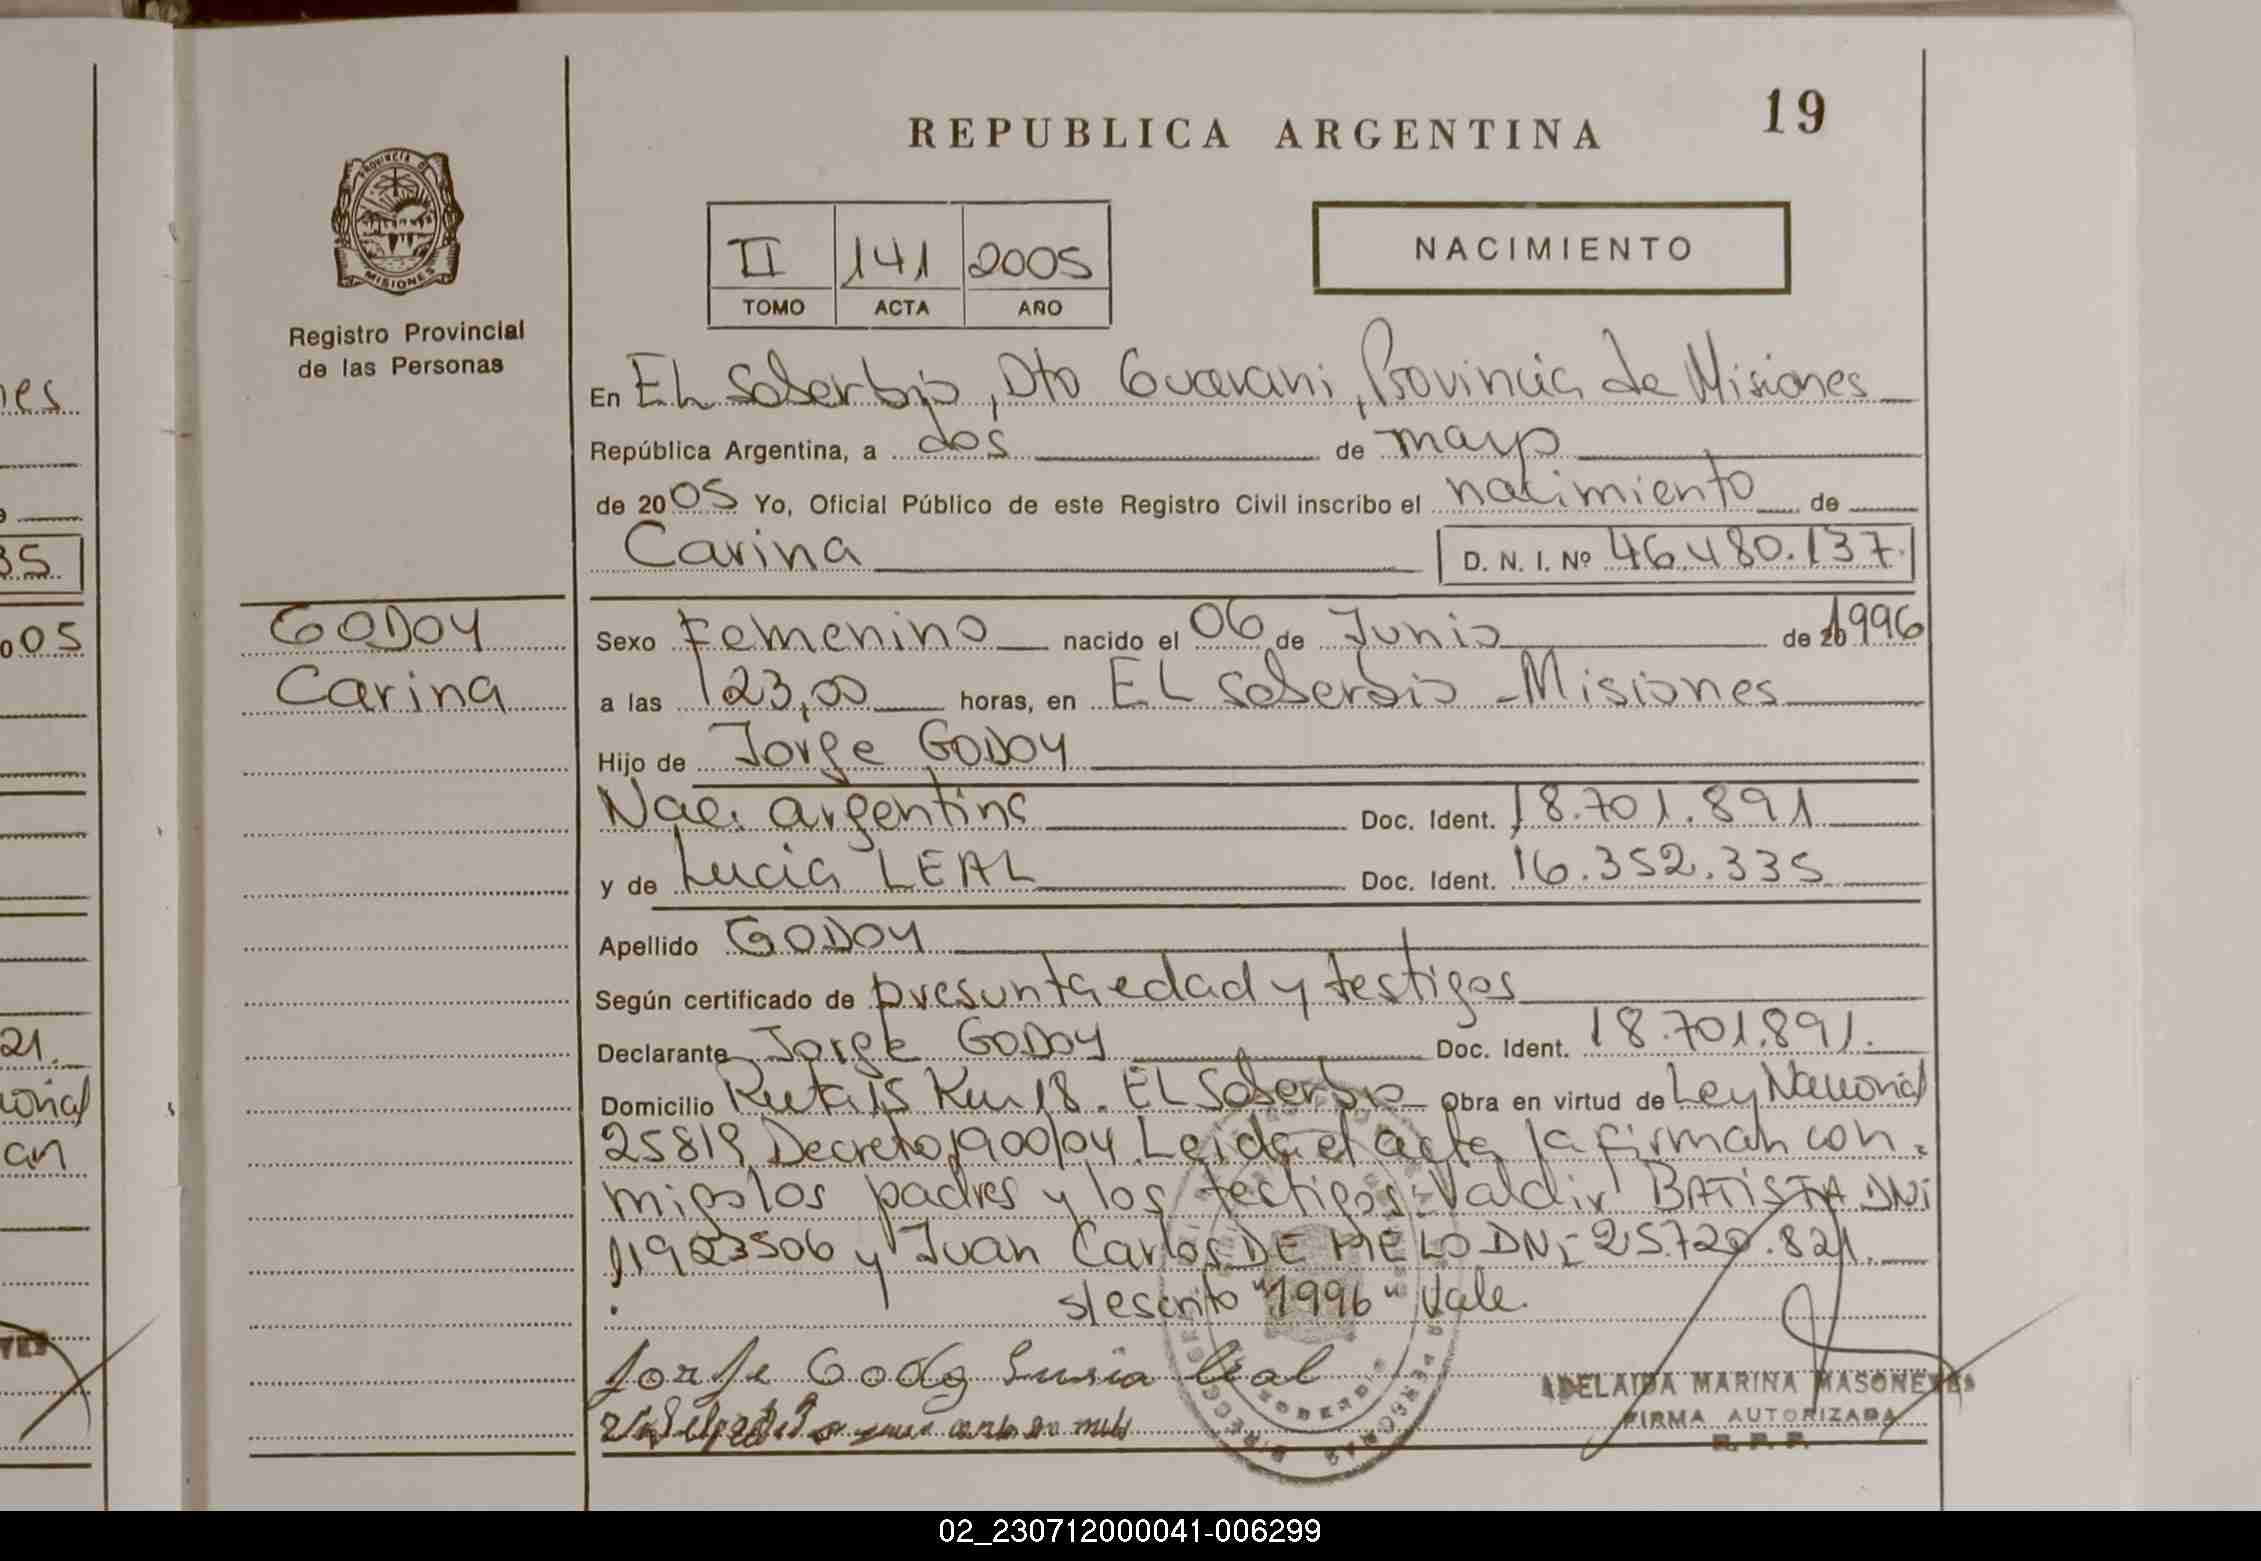 REPUBLICA ARGENTINA
19
PROVINCIA DE
MISIONES
Registro Provincial
de las Personas
II 141 2005
TOMO ACTA AÑO
NACIMIENTO
En EL Soberbio, Dto Guarani, Provincia de Misiones
República Argentina, a dos de mayo
de 2005 Yo, Oficial Público de este Registro Civil inscribo el nacimiento de
Carina D. N. I. Nº 46.480.137
GODOY
Carina
Sexo Femenino nacido el 06 de Junio de 20 1996
a las 23,00 horas, en EL Soberbio - Misiones
Hijo de Jorge GODOY
Nac. argentina Doc. Ident. 18.701.891
y de Lucia LEAL Doc. Ident. 16.352.335
Apellido GODOY
Según certificado de presunta edad y testigos
Declarante Jorge GODOY Doc. Ident. 18.701.891.
Domicilio Ruta 15 Km 18. EL Soberbio Obra en virtud de Ley Nacional
25819, Decreto 1900/04. Leida el acta la firman con
migo los padres y los testigos: Valdir BATISTA DNi
11923506 y Juan Carlos DE MELO DNi 25.720.821.
s/escrito "1996" Vale.
Jorge Godoy Lucia Leal
ADELAIDA MARINA MASONEVES
FIRMA AUTORIZADA
R. P. P.
nes
35
005
21.
cional
an
02_230712000041-006299